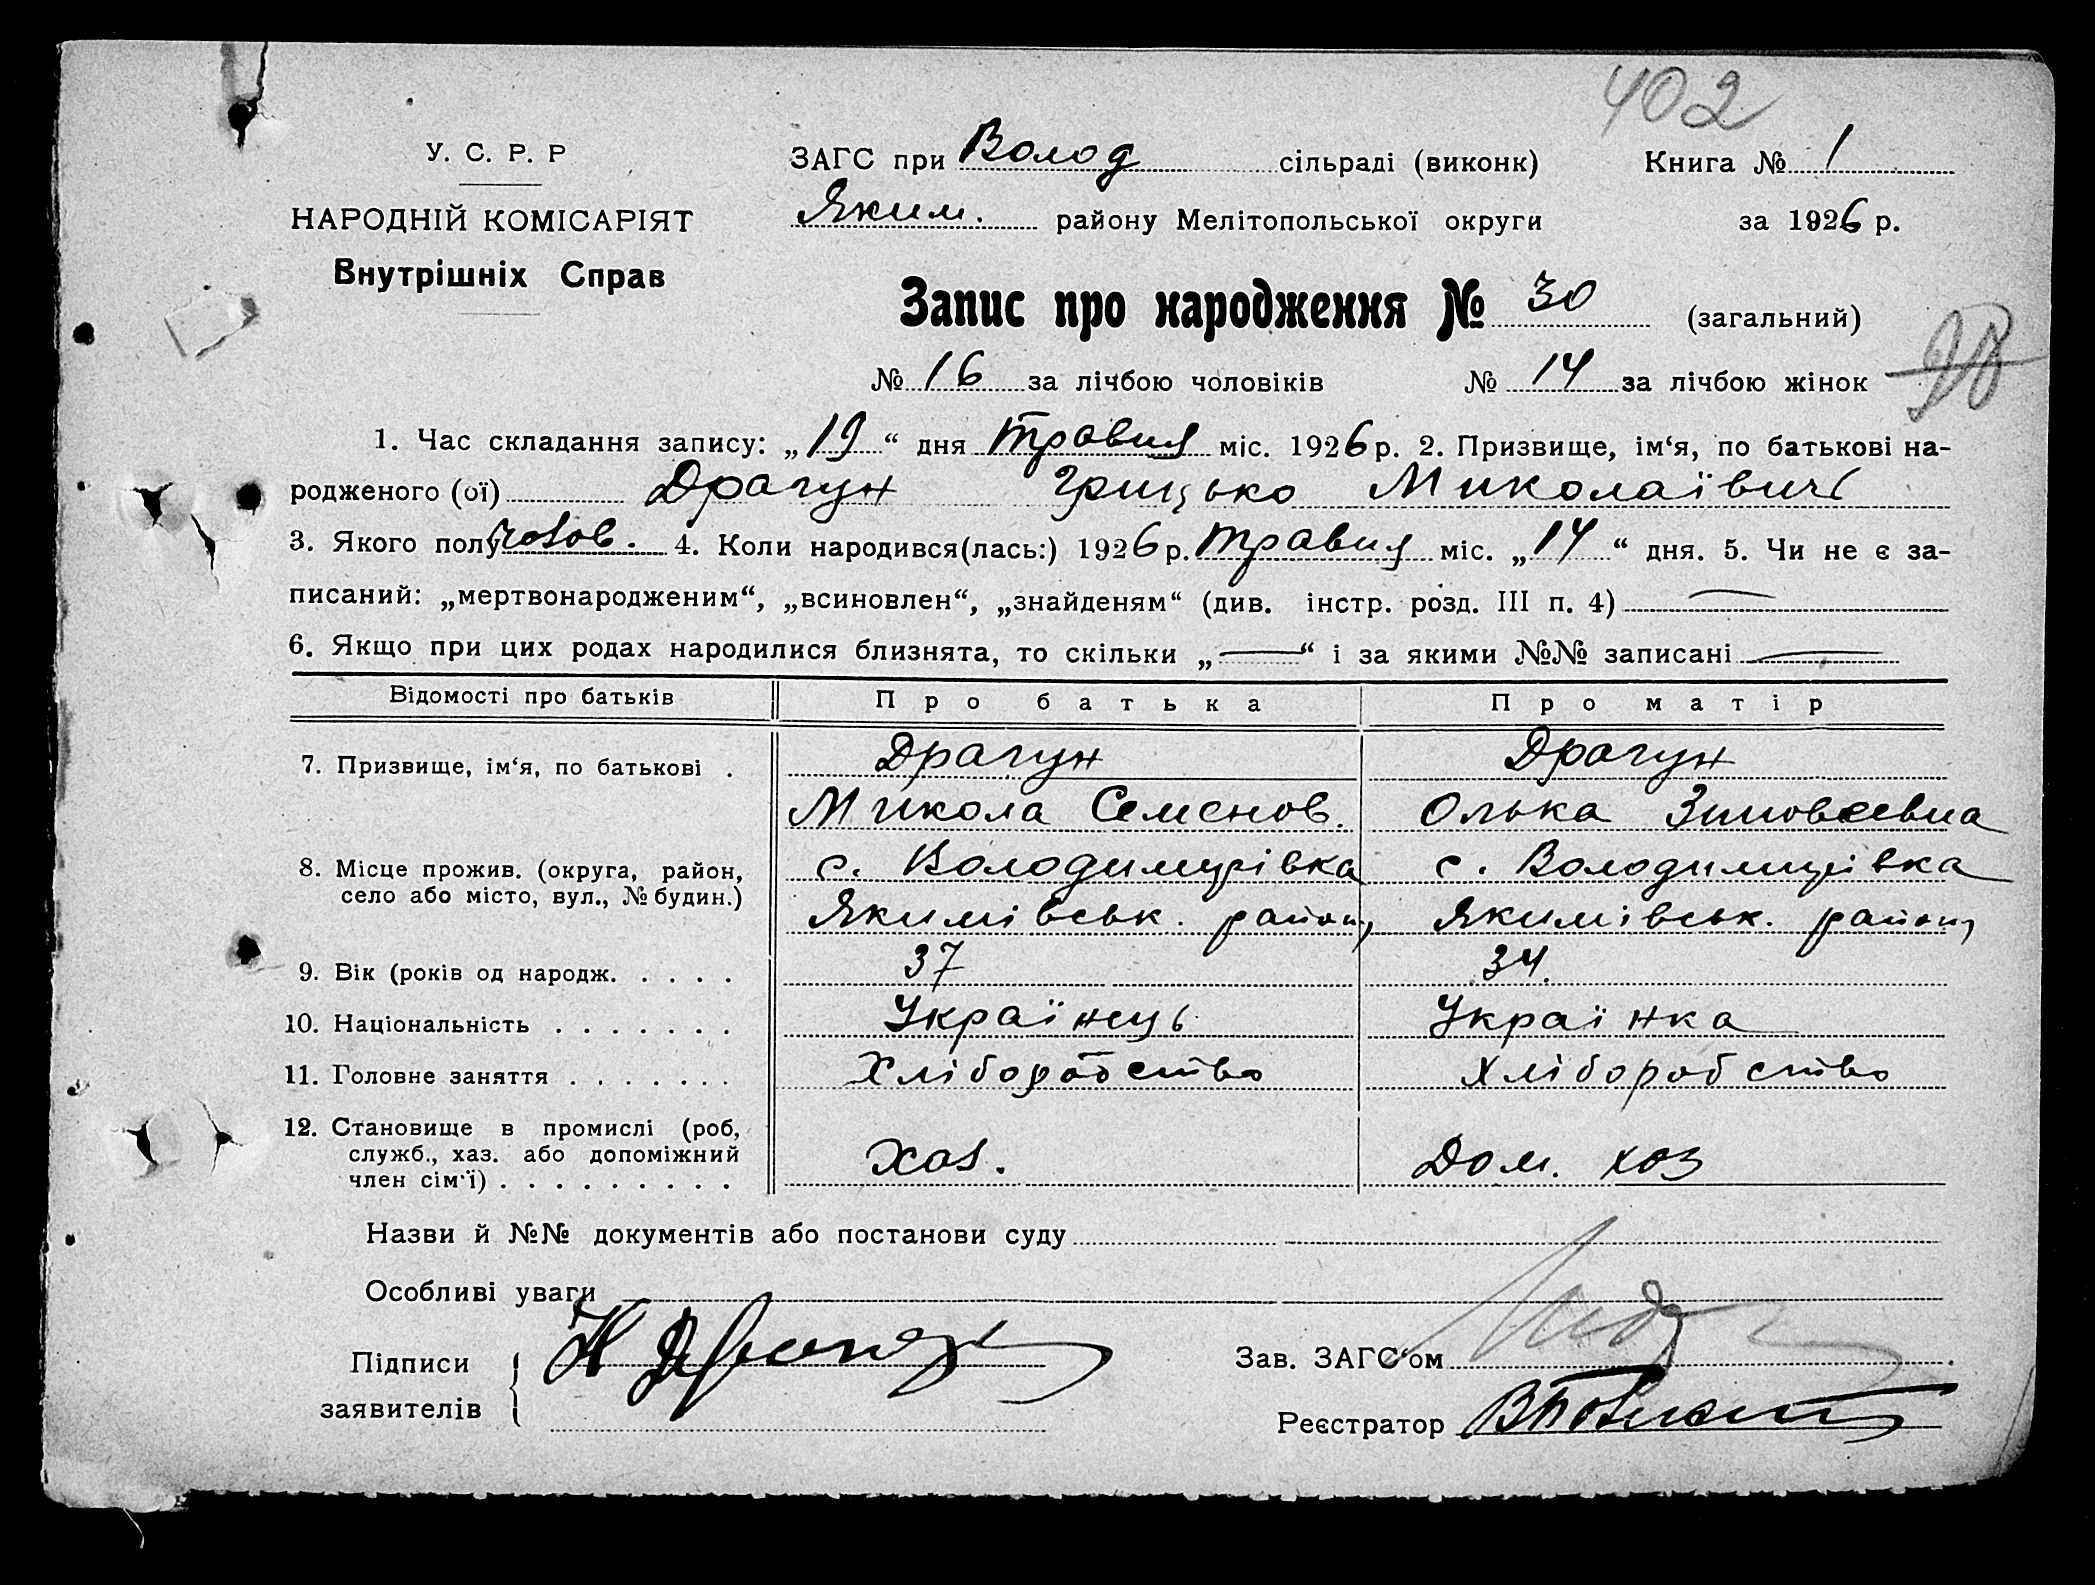 402
У. С. Р. Р
НАРОДНІЙ КОМІСАРІЯТ
Внутрішніх Справ
ЗАГС при Волод сільраді (виконк) Книга № 1
Яким. району Мелітопольської округи за 1926 р.
Запис про народження № 30 (загальний)
№ 16 за лічбою чоловіків № 14 за лічбою жінок
1. Час складання запису: „19“ дня травня міс. 1926 р. 2. Призвище, ім‘я, по батькові на-
родженого (ої) Драгун Грицько Миколаївич
3. Якого полу чолов. 4. Коли народився(лась:) 1926 р. травня міс. „14“ дня. 5. Чи не є за-
писаний: „мертвонародженим“, „всиновлен“, „знайденям“ (див. інстр. розд. III п. 4) —
6. Якщо при цих родах народилися близнята, то скільки „—“ і за якими №№ записані —
Відомості про батьків Про батька Про матір
7. Призвище, ім‘я, по батькові . Драгун Драгун
Микола Семенов. Олька Зиновеевна
8. Місце прожив. (округа, район, с. Володимирівка с. Володимирівка
село або місто, вул., № будин.) Якимівськ. району Якимівськ. району
9. Вік (років од народж. . . . . 37 34.
10. Національність . . . . . . . Українець Українка
11. Головне заняття . . . . . . . Хліборобство Хліборобство
12. Становище в промислі (роб,
служб., хаз. або допоміжний Хаз. Дом. хоз
член сім‘ї) . . . . . . . . .
Назви й №№ документів або постанови суду
Особливі уваги
Підписи Зав. ЗАГС‘ом
заявителів Н Драгун
Реєстратор